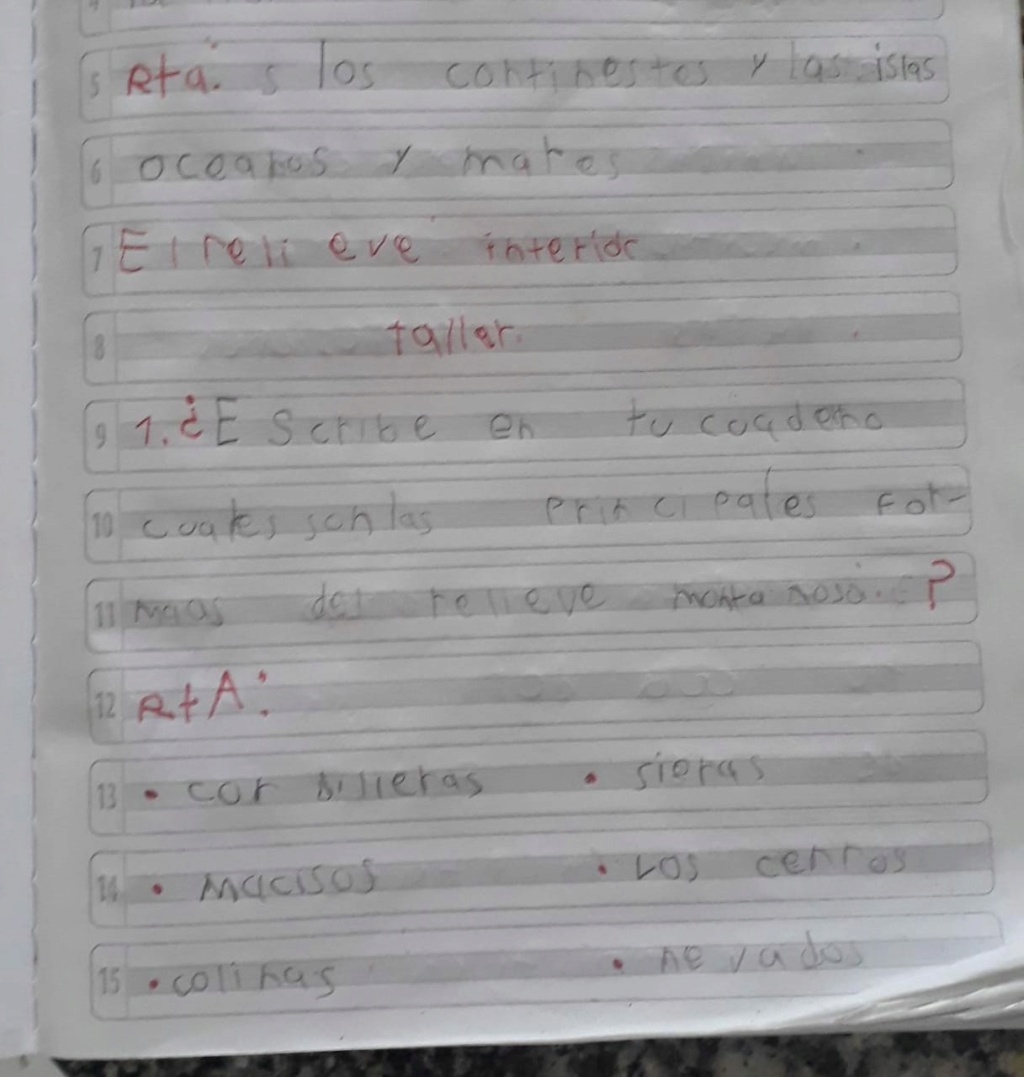 5 Rta. s los continestes y las islas
6 oceanos y mares
7 El reli eve interior
8 taller.
9 1. ¿E scribe en tu cuaderno
10 cuales son las principales For-
11 maas del relieve montanoso. ?
12 RtA:
13 • cor dilleras • sieras
14 • macisos • Los cerros
15 • colinas • nevados